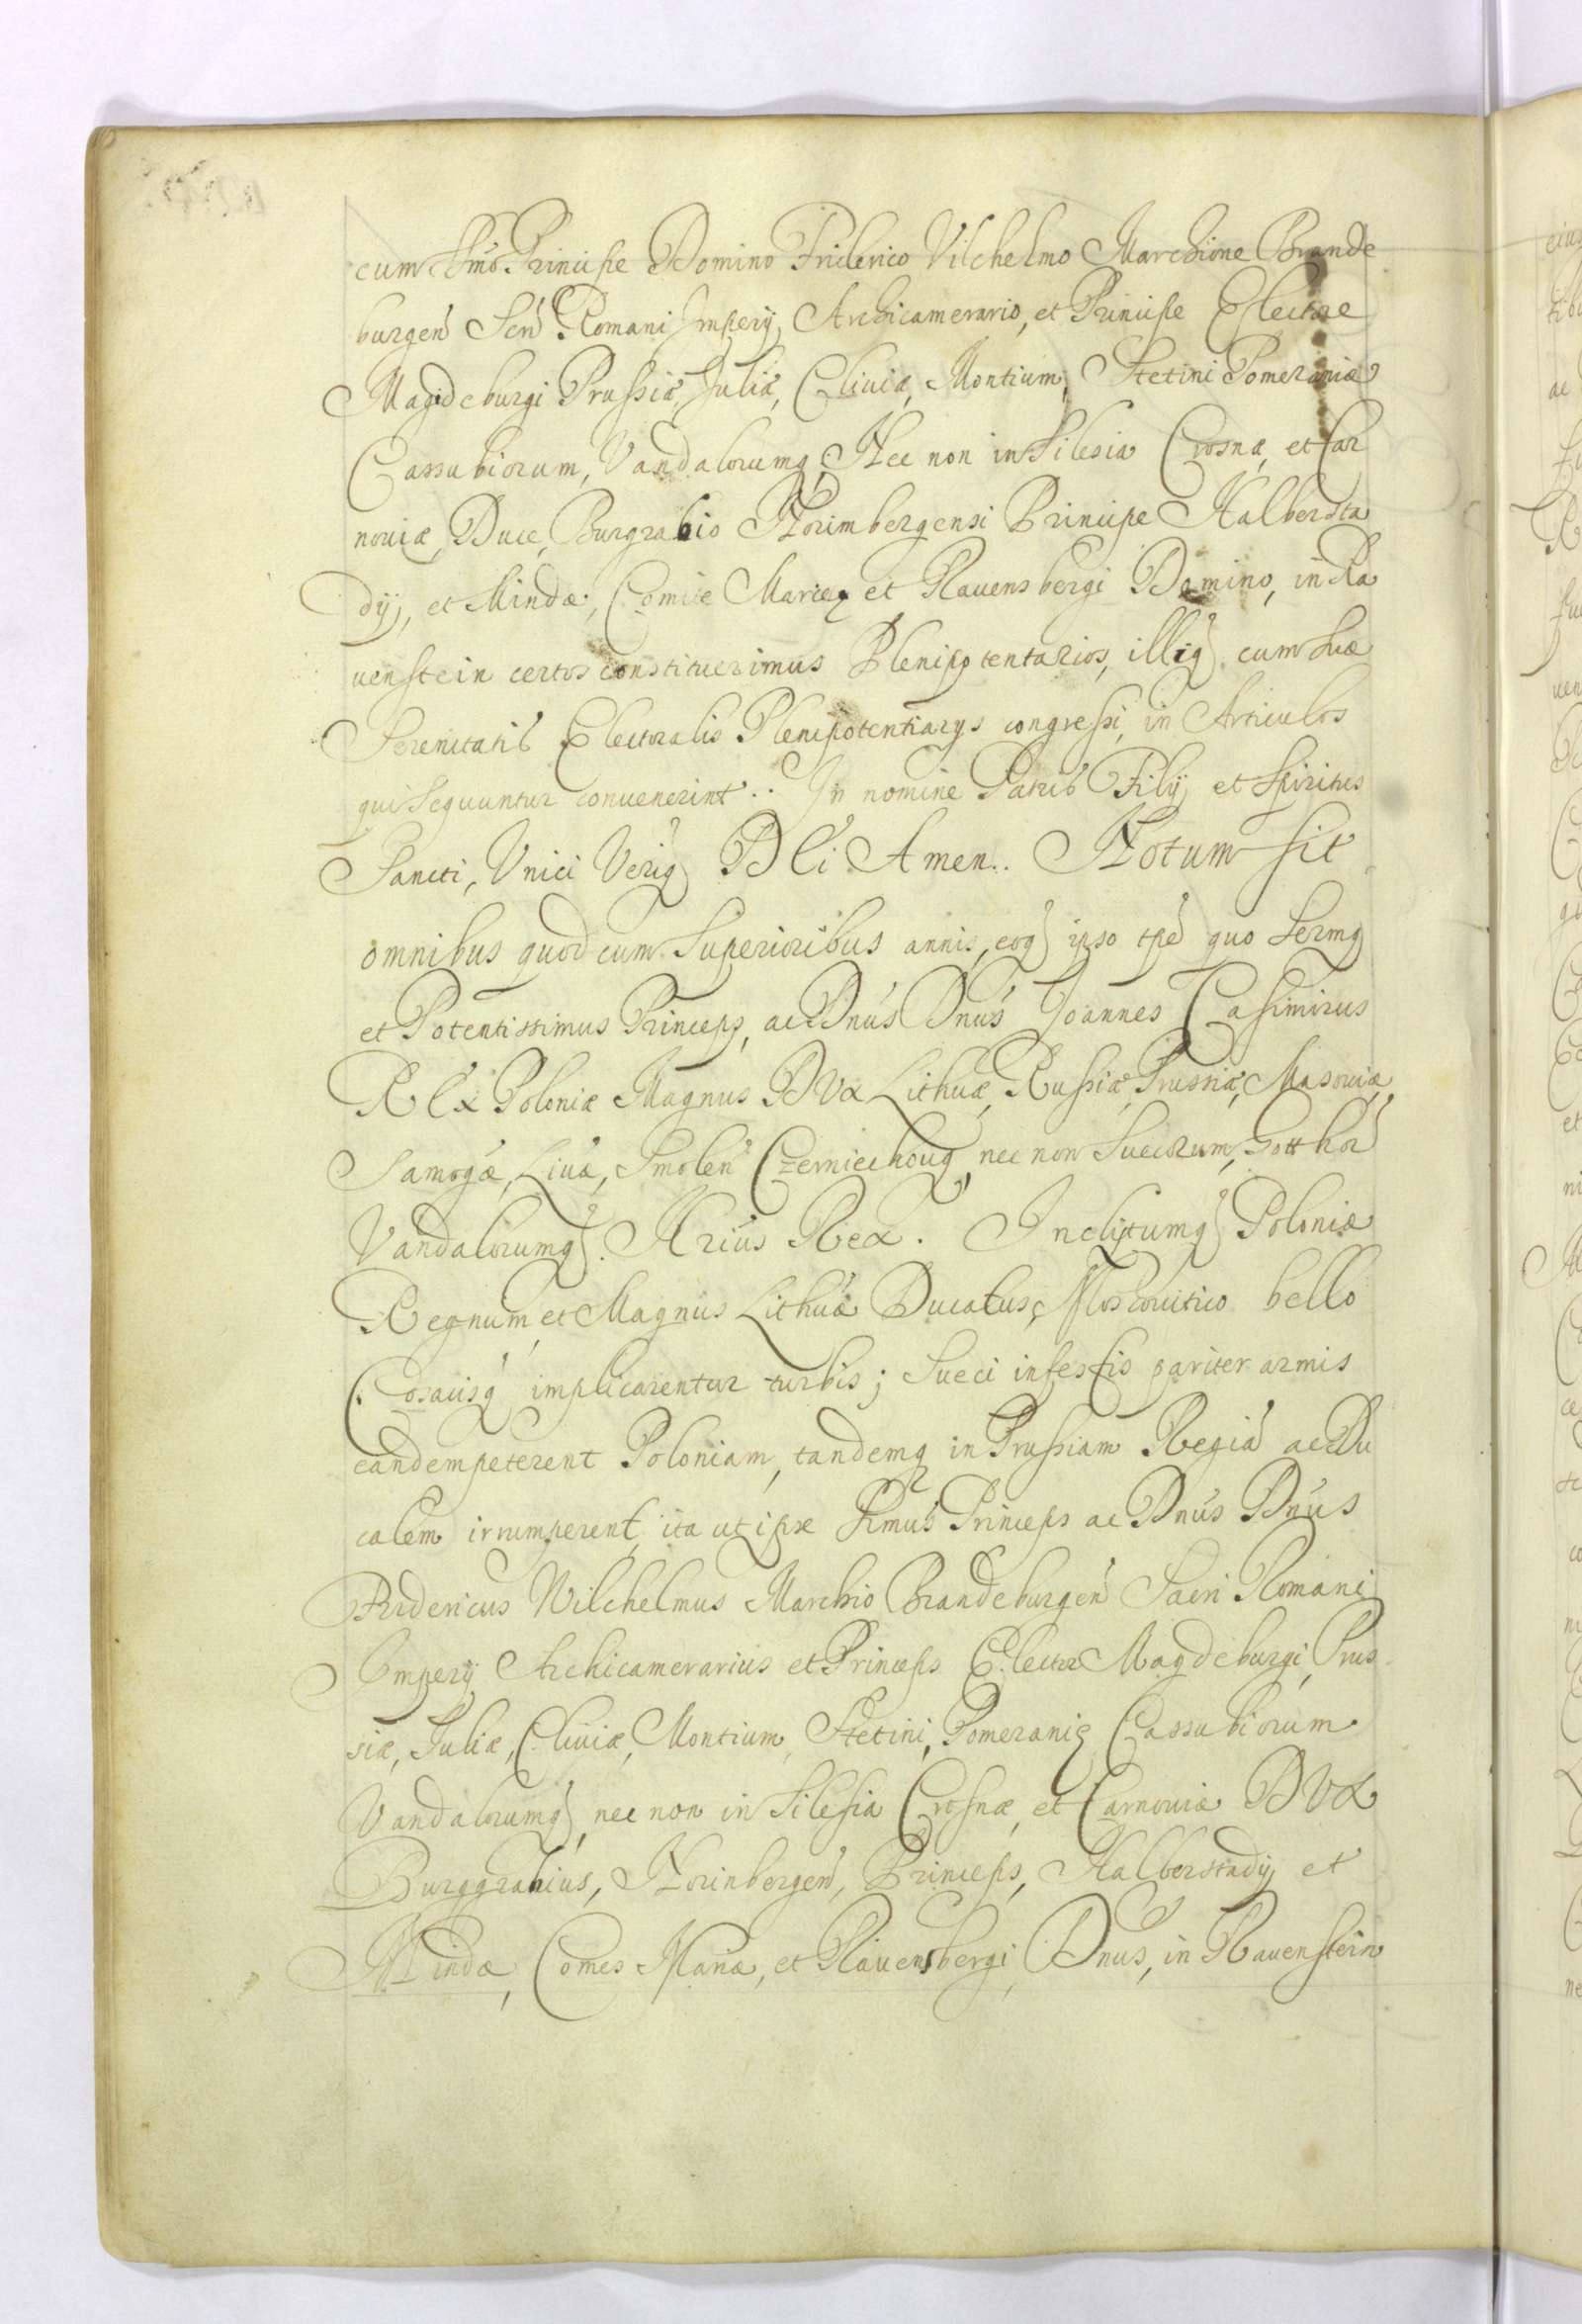 cum Srmo Principe Domino Friderico Vilchelmo Marchione Brande
burgen Scri Romani Imperij Archicamerario, et Principe Electore
Magdeburgi Prussiæ Juliæ, Cliuiæ, Montium, Stetini Pomeraniæ
Cassubiorum, Vandalorumq Nec non in Silesia Crosnæ, et Car
nouiæ, Duce, Burgrabio Norimbergensi Principe Halbersta
dij, et Mindæ, Comite Marcæ et Rauensbergi Domino, in Ra
uenstein certos constituerimus Plenipotentarios, illiq cum Suæ
Serenitatis Electoralis Plenipotentiarys congressi, in Articulos
qui sequuntur conuenerint.. In nomine Patris Filij et Spiritus
Sancti, Vnici Veriq DEi Amen.. Notum sit
omnibus quod cum Superioribus annis, eoq ipso tpe quo Sermq
et Potentissimus Princeps, ac Dnus Dnus Joannes Casimirus
REx Poloniæ Magnus DVx Lithuæ, Russiæ, Prussiæ, Masouiæ,
Samogæ, Liuæ, Smolen Czerniechouq, nec non Suecorum, Gotthor
Vandalorumq Hrius Rex. Inclytumq Poloniæ
Regnum, et Magnus Lithuæ Ducatus, Moscouitico bello
Cosacisq implicarentur turbis; Sueci infestis pariter armis
eandem peterent Poloniam, tandemq in Prussiam Regia ac Du
calem irrumperent, ita ut ipse Srmus Princeps ac Dnus Dnus
Fridericus Wilchelmus Marchio Brandeburgen Sacri Romani
Imperij Archicamerarius et Princeps Elector Magdeburgi, Prus
siæ, Juliæ, Cliuiæ, Montium, Stetini, Pomeraniæ Cassubiorum
Vandalorumq, nec non in Silesia Crosnæ, et Carnouiæ DVx
Burggrabius, Norinbergen, Princeps, Halberstadij et
Mindæ, Comes Marcæ, et Rauensbergi, Dnus, in Rauenstein